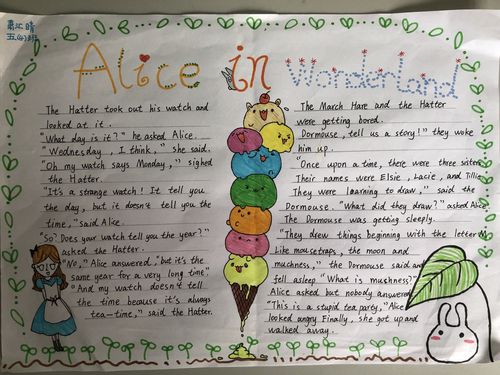 五(4)班
Alice in Wonderland
The Hatter took out his watch and
looked at it.
"What day is it?" he asked Alice.
"Wednesday, I think," she said.
"Oh my watch says Monday," sighed
the Hatter.
"It's a strange watch! It tell you
the day, but it doesn't tell you the
time," said Alice.
"So? Does your watch tell you the year?"
asked the Hatter.
"No," Alice answered, "but it's the
same year for a very long time"
"And my watch doesn't tell
the time because it's always
tea-time," said the Hatter.
The March Hare and the Hatter
were getting bored.
Dormouse, tell us a story!" they woke
him up.
"Once upon a time, there were three sisters
Their names were Elsie, Lacie, and Tillie
They were learning to draw," said the
Dormouse. "What did they draw?" asked Alice
The Dormouse was getting sleeply.
"They drew things beginning with the letter M
Like mousetraps, the moon and
muchness," the Dormouse said and
fell asleep "What is mushness?"
Alice asked but nobody answered
"This is a stupid tea party," Alice
looked angry Finally, she got up and
walked away.